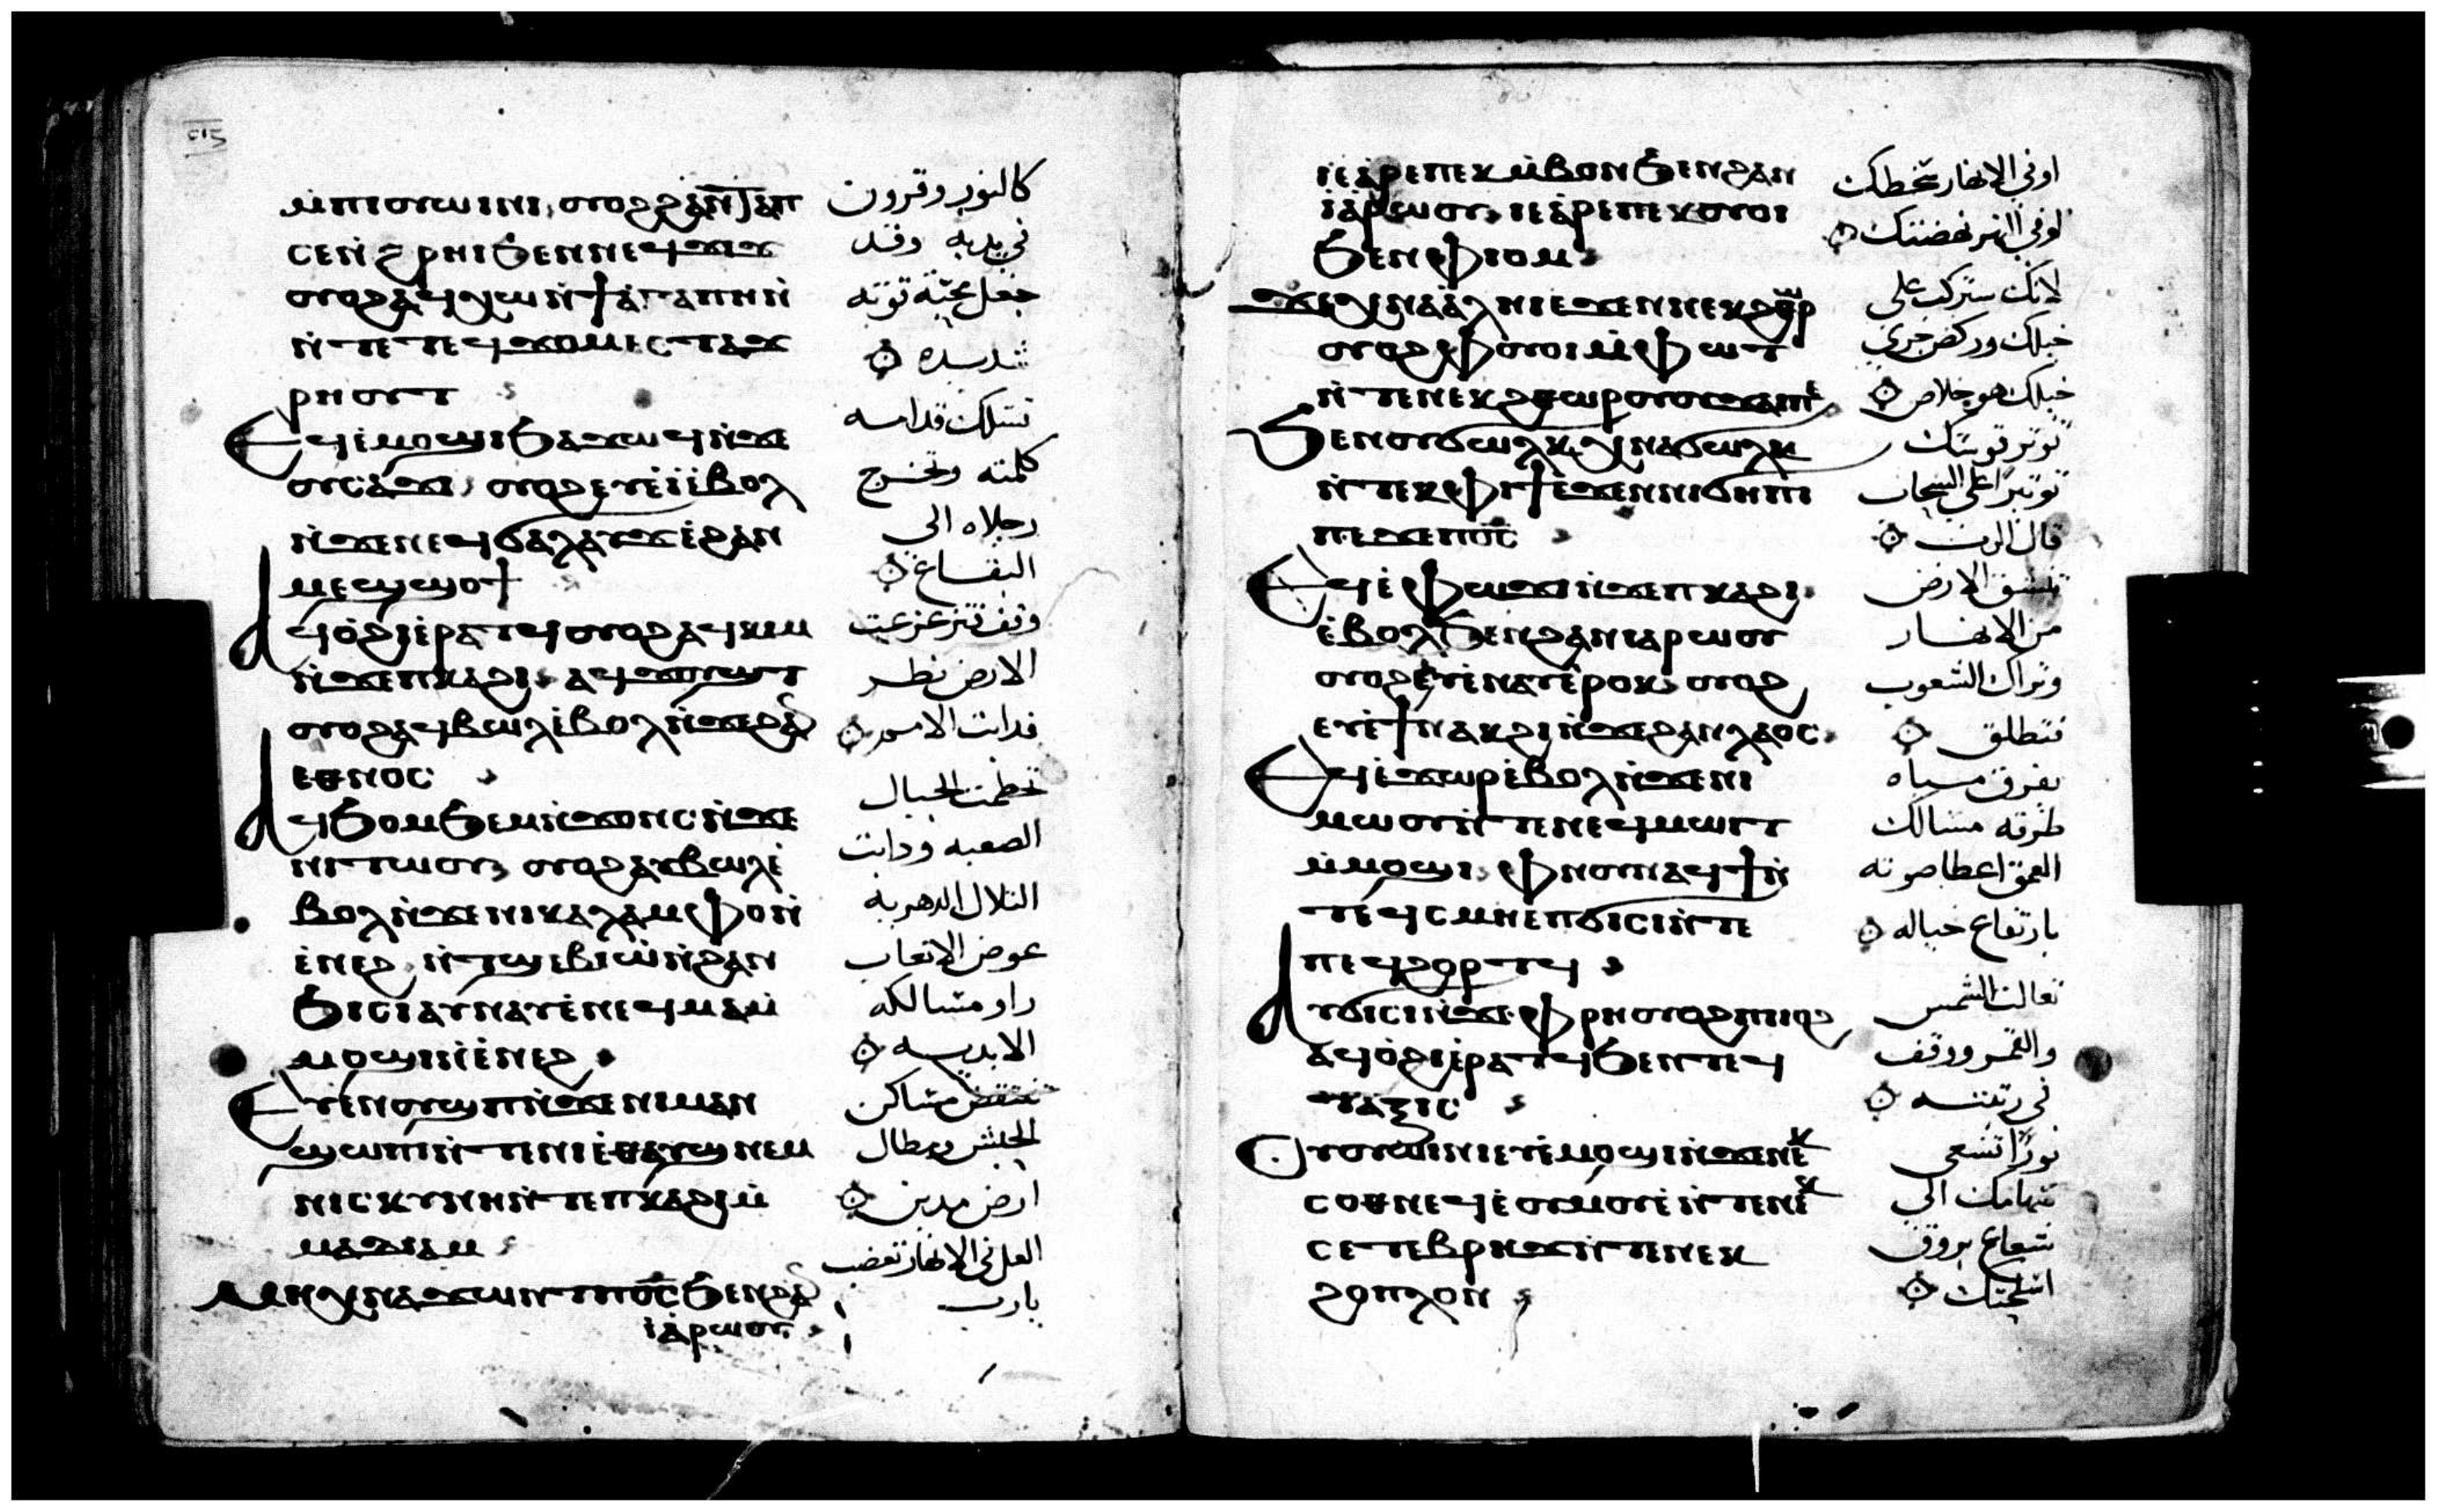 ⲙ̀ⲡⲓⲟⲩⲱⲓⲛⲓ, ⲟⲩⲟϩ ϩⲁⲛⲧⲁⲡ
ⲥⲉⲛ̀ϩ̀ⲣⲏⲓ ϧⲉⲛ ⲛⲉϥϫⲓϫ
ⲟⲩⲟϩ ⲁϥⲭⲱ ⲛ̀ϯⲁ̀ⲅⲁⲡⲏ ⲛ̀
ⲛ̀ⲧⲉ ⲧⲉϥϫⲟⲙ ⲉⲥⲧⲁϫ
ⲣⲏⲟⲩⲧ
Ⲉϥⲓ̀ⲙⲟϣⲓ ϧⲁϫⲱϥ ⲛ̀ϫⲉ
ⲟⲩⲥⲁϫⲓ, ⲟⲩⲟϩ ⲉⲩⲉ̀ⲓ̀ ⲉ̀ⲃⲟⲗ
ⲛ̀ϫⲉ ⲛⲉϥϭⲁⲗⲁⲩϫ ⲉ̀ϩⲁⲛ
ⲙⲉϣϣⲟϯ
Ⲁϥⲟ̀ϩⲓ ⲉ̀ⲣⲁⲧϥ ⲟⲩⲟϩ ⲁϥⲕⲓⲙ
ⲛ̀ϫⲉ ⲡⲕⲁϩⲓ, ⲁϥϫⲟⲩϣⲧ
ⲟⲩⲟϩ ⲁϥⲃⲱⲗ ⲉ̀ⲃⲟⲗ ⲛ̀ϫⲉ ϩⲁⲛ
ⲉⲑⲛⲟⲥ
Ⲁϥϧⲟⲙϧⲉⲙ ⲛ̀ϫⲟⲛⲥ ⲛ̀ϫⲉ
ⲛⲓⲧⲱⲟⲩ, ⲟⲩⲟϩ ⲁⲩⲃⲱⲗ ⲉ̀
ⲃⲟⲗ ⲛ̀ϫⲉ ⲛⲓⲕⲁⲗⲁⲙⲫⲟ ⲛ̀
ⲉ̀ⲛⲉϩ, ⲛ̀ⲧϣⲉⲃⲓⲱ̀ ⲛ̀ϩⲁⲛ
ϧⲓⲥⲓ ⲁⲩⲛⲁⲩ ⲉ̀ⲛⲉϥⲙⲁⲙ̀
ⲙⲟϣⲓ ⲛ̀ⲉ̀ⲛⲉϩ
Ⲉⲩⲉ̀ⲛⲟⲩϣⲡ ⲛ̀ϫⲉ ⲛⲓⲙⲁⲛ
ϣⲱⲡⲓ ⲛ̀ⲧⲉ ⲛⲓⲉ̀ⲑⲁⲩϣ ⲛⲉⲙ
ⲛⲓⲥⲕⲩⲛⲏ ⲛ̀ⲧⲉ ⲡⲕⲁϩⲓ ⲙ̀
ⲙⲁⲇⲓⲁⲙ
Ⲙⲏ ⲭⲛⲁϫⲱⲛⲧ ⲡⲟ̅ⲥ̅ ϧⲉⲛ ϩⲁⲛ
ⲓⲁ̀ⲣⲱⲟⲩ
كالنور وقرون
في يديه وقد
جعل محبّة قوته
شديده
تسلك قدامه
كلمته وتخرج
رجلاه الى
البقاع
وقف فتزعزعت
الارض نظر
فذابت الامم
تحطمت الجبال
الصعبه وذابت
التلال الدهريه
عوض الاتعاب
راو مسالكه
الابديه
تنتقض مساكن
الحبش ومطال
ارض مدين
العل في الانهار تغضب
يارب
ⲓⲉ ⲁ̀ⲣⲉ ⲡⲉⲕⲙ̀ⲃⲟⲛ ϧⲉⲛ ϩⲁⲛ
ⲓⲁ̀ⲣⲱⲟⲩ, ⲓⲉ ⲁ̀ⲣⲉ ⲡⲉⲕⲟⲩⲟⲓ
ϧⲉⲛ ⲫ̀ⲓⲟⲙ
Ϫⲉ ⲭⲛⲁⲁ̀ⲗⲏⲓ ⲉ̀ϫⲉⲛ ⲛⲉⲕϩⲑⲱⲣ
ⲟⲩⲟϩ ⲫ̀ⲟⲩⲟⲓ ⲙ̀ⲫⲱⲧ
ⲛ̀ⲧⲉ ⲛⲉⲕϩⲑⲱⲣ ⲟⲩⲟⲩϫⲁⲓ ⲡⲉ
Ϧⲉⲛ ⲟⲩϭⲱⲗⲕ ⲭⲛⲁϭⲱⲗⲕ
ⲛ̀ⲧⲉⲕⲫⲓϯ ⲉ̀ϫⲉⲛ ⲛⲓϭⲏⲡⲓ
ⲡⲉϫⲉ ⲡⲟ̅ⲥ̅
Ⲉϥⲉ̀ⲫⲱϫⲓ ⲛ̀ϫⲉ ⲡⲕⲁϩⲓ
ⲉ̀ⲃⲟⲗ ϧⲉⲛ ϩⲁⲛⲓⲁⲣⲱⲟⲩ
ⲟⲩⲟϩ ⲉⲩⲉ̀ⲛⲁⲩ ⲉ̀ⲣⲟⲕ, ⲟⲩⲟϩ
ⲉⲩⲉ̀ϯⲛⲁⲕϩⲓ ⲛ̀ϫⲉ ϩⲁⲛⲗⲁⲟⲥ
Ⲉϥⲉ̀ϫⲱⲣ ⲉ̀ⲃⲟⲗ ⲛ̀ϫⲉ ⲛⲓ
ⲙⲱⲟⲩ ⲛ̀ⲧⲉ ⲛⲉϥⲙⲱⲓⲧ
ⲙ̀ⲙⲟϣⲓ, ⲫ̀ⲛⲟⲩⲛ ⲁϥϯ ⲛ̀
ⲧⲉϥⲥⲙⲏ ⲉ̀ⲡϭⲓⲥⲓ ⲛ̀ⲧⲉ
ⲡⲉϥϩⲟⲣⲧϥ
Ⲁⲩϭⲓⲥⲓ ⲛ̀ϫⲉ ⲫ̀ⲣⲏ ⲟⲩⲟϩ ⲡⲓⲓⲟϩ
ⲁϥⲟ̀ϩⲓ ⲉ̀ⲣⲁⲧϥ ϧⲉⲛ ⲧⲉϥ
ⲧⲁⲝⲓⲥ
Ⲟⲩⲟⲩⲱⲓⲛⲓ ⲉⲩⲉ̀ⲙⲟϣⲓ ⲛ̀ϫⲉ ⲛⲉⲕ
ⲥⲟⲑⲛⲉϥ ⲉⲟⲩⲙⲟⲩⲉ̀ ⲛ̀ⲧⲉ ⲛⲓ
ⲥⲉⲧⲉⲃⲣⲏϫ ⲛ̀ⲧⲉ ⲛⲉⲕ
ϩⲟⲡⲗⲟⲛ
اوفي الانهار سخطك
اوفي البحر نهضتك
لانك ستركب على
خيلك وركض جري
خيلك هو خلاص
توتر قوسك
توتيرًا على السحاب
قال الرب
تنشق الارض
من الانهار
وتراك الشعوب
فتطلق
يفرق مياه
طرقه مسالك
العمق اعطا صوته
بارتفاع خياله
تعالت الشمس
والقمر ووقف
في رتبته
نورًا تسعى
سهامك الى
شعاع بروق
اسلحتك